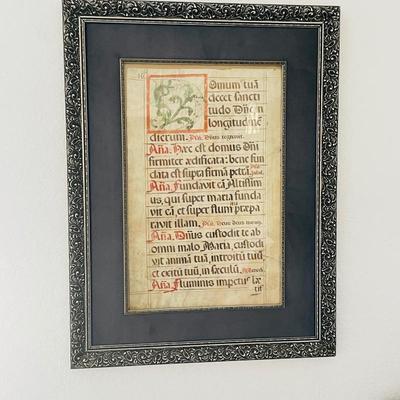 DOmum tuā
decet sancti
tudo Dñe in
longitudinē
dierum. Psal. Dñus regnavit.
Aña. Hæc est domus Dñi
firmiter ædificata: bene fun
data est supra firmā petrā.
Aña. Fundavit eā Altissim
us, qui super maria funda
vit eā et super flumi præpa
ravit illam. Psal. Deus deus meus.
Aña. Dñus custodit te ab
omni malo Maria, custodi
vit animā tuā, introitū tuū,
et exitū tuū, in sæculū.
Aña. Fluminis impetus læ
tif